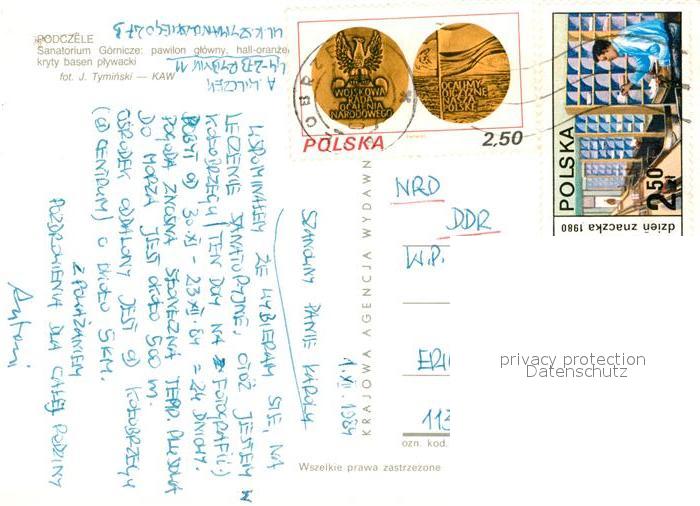 PODCZELE
Sanatorium Górnicze: pawilon główny, hall-oranże
kryty basen pływacki
fot. J. Tymiński — KAW
WOJSKOWA
RADA
OCALENIA
NARODOWEGO
OCALIMY
POLSKA
2,50
POLSKA
2,50 zł
dzień znaczka 1980
KRAJOWA AGENCJA WYDAWN
NRD
DDR
W.P.
113
ozn. kod.
Wszelkie prawa zastrzeżone
privacy protection
Datenschutz
1.XII.1984
SZANOWNY PANIE KAROLU
WSPOMINAŁEM ŻE WYBIERAM SIĘ NA
LECZENIE SANATORYJNE, OTÓŻ JESTEM W
KOŁOBRZEGU (TEN DOM NA FOTOGRAFII)
OD 30 XI - 23 XII 84 = 24 DNIOWY.
POGODA ZNOŚNA SŁONECZNA TEMP. PLUSOWA
DO MORZA JEST OKOŁO 500 m.
OŚRODEK ODDALONY JEST OD KOŁOBRZEGU
(OD CENTRUM) O OKOŁO 5 KM.
Z POWAŻANIEM
POZDROWIENIA DLA CAŁEJ RODZINY
Antoni